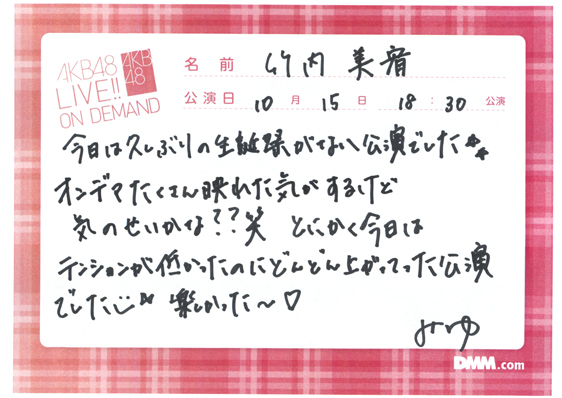 AKB48
LIVE!!
ON DEMAND
AKB
48
名前 竹内 美宥
公演日 10月 15日 18:30 公演
今日は久しぶりの生誕祭がない公演でした
オンデマたくさん映れた気がするけど
気のせいかな??笑 とにかく今日は
テンションが低かったのにどんどん上がってった公演
でした 楽しかった〜♡
みゆ
DMM.com